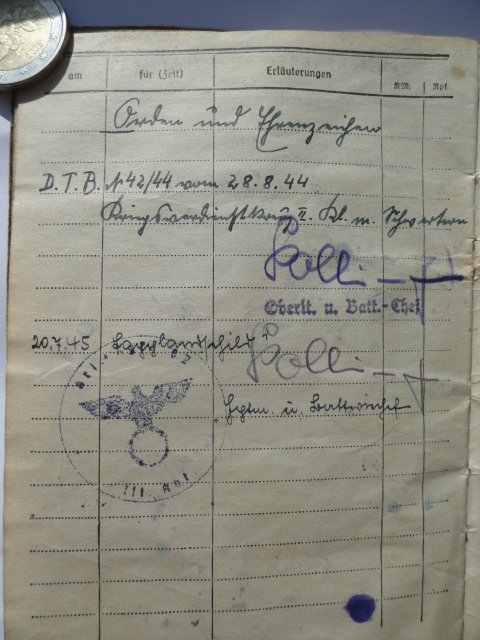 am für (Zeit) Erläuterungen RM. Rpf.
Orden und Ehrenzeichen
D.T.B. N42/44 vom 28.8.44
Kriegsverdienstkreuz II. Kl. m. Schwertern
Oberlt. u. Battr.-Chef
20.7.45 Lapplandschild
Hptm. u. Battrchef
III. Abt.